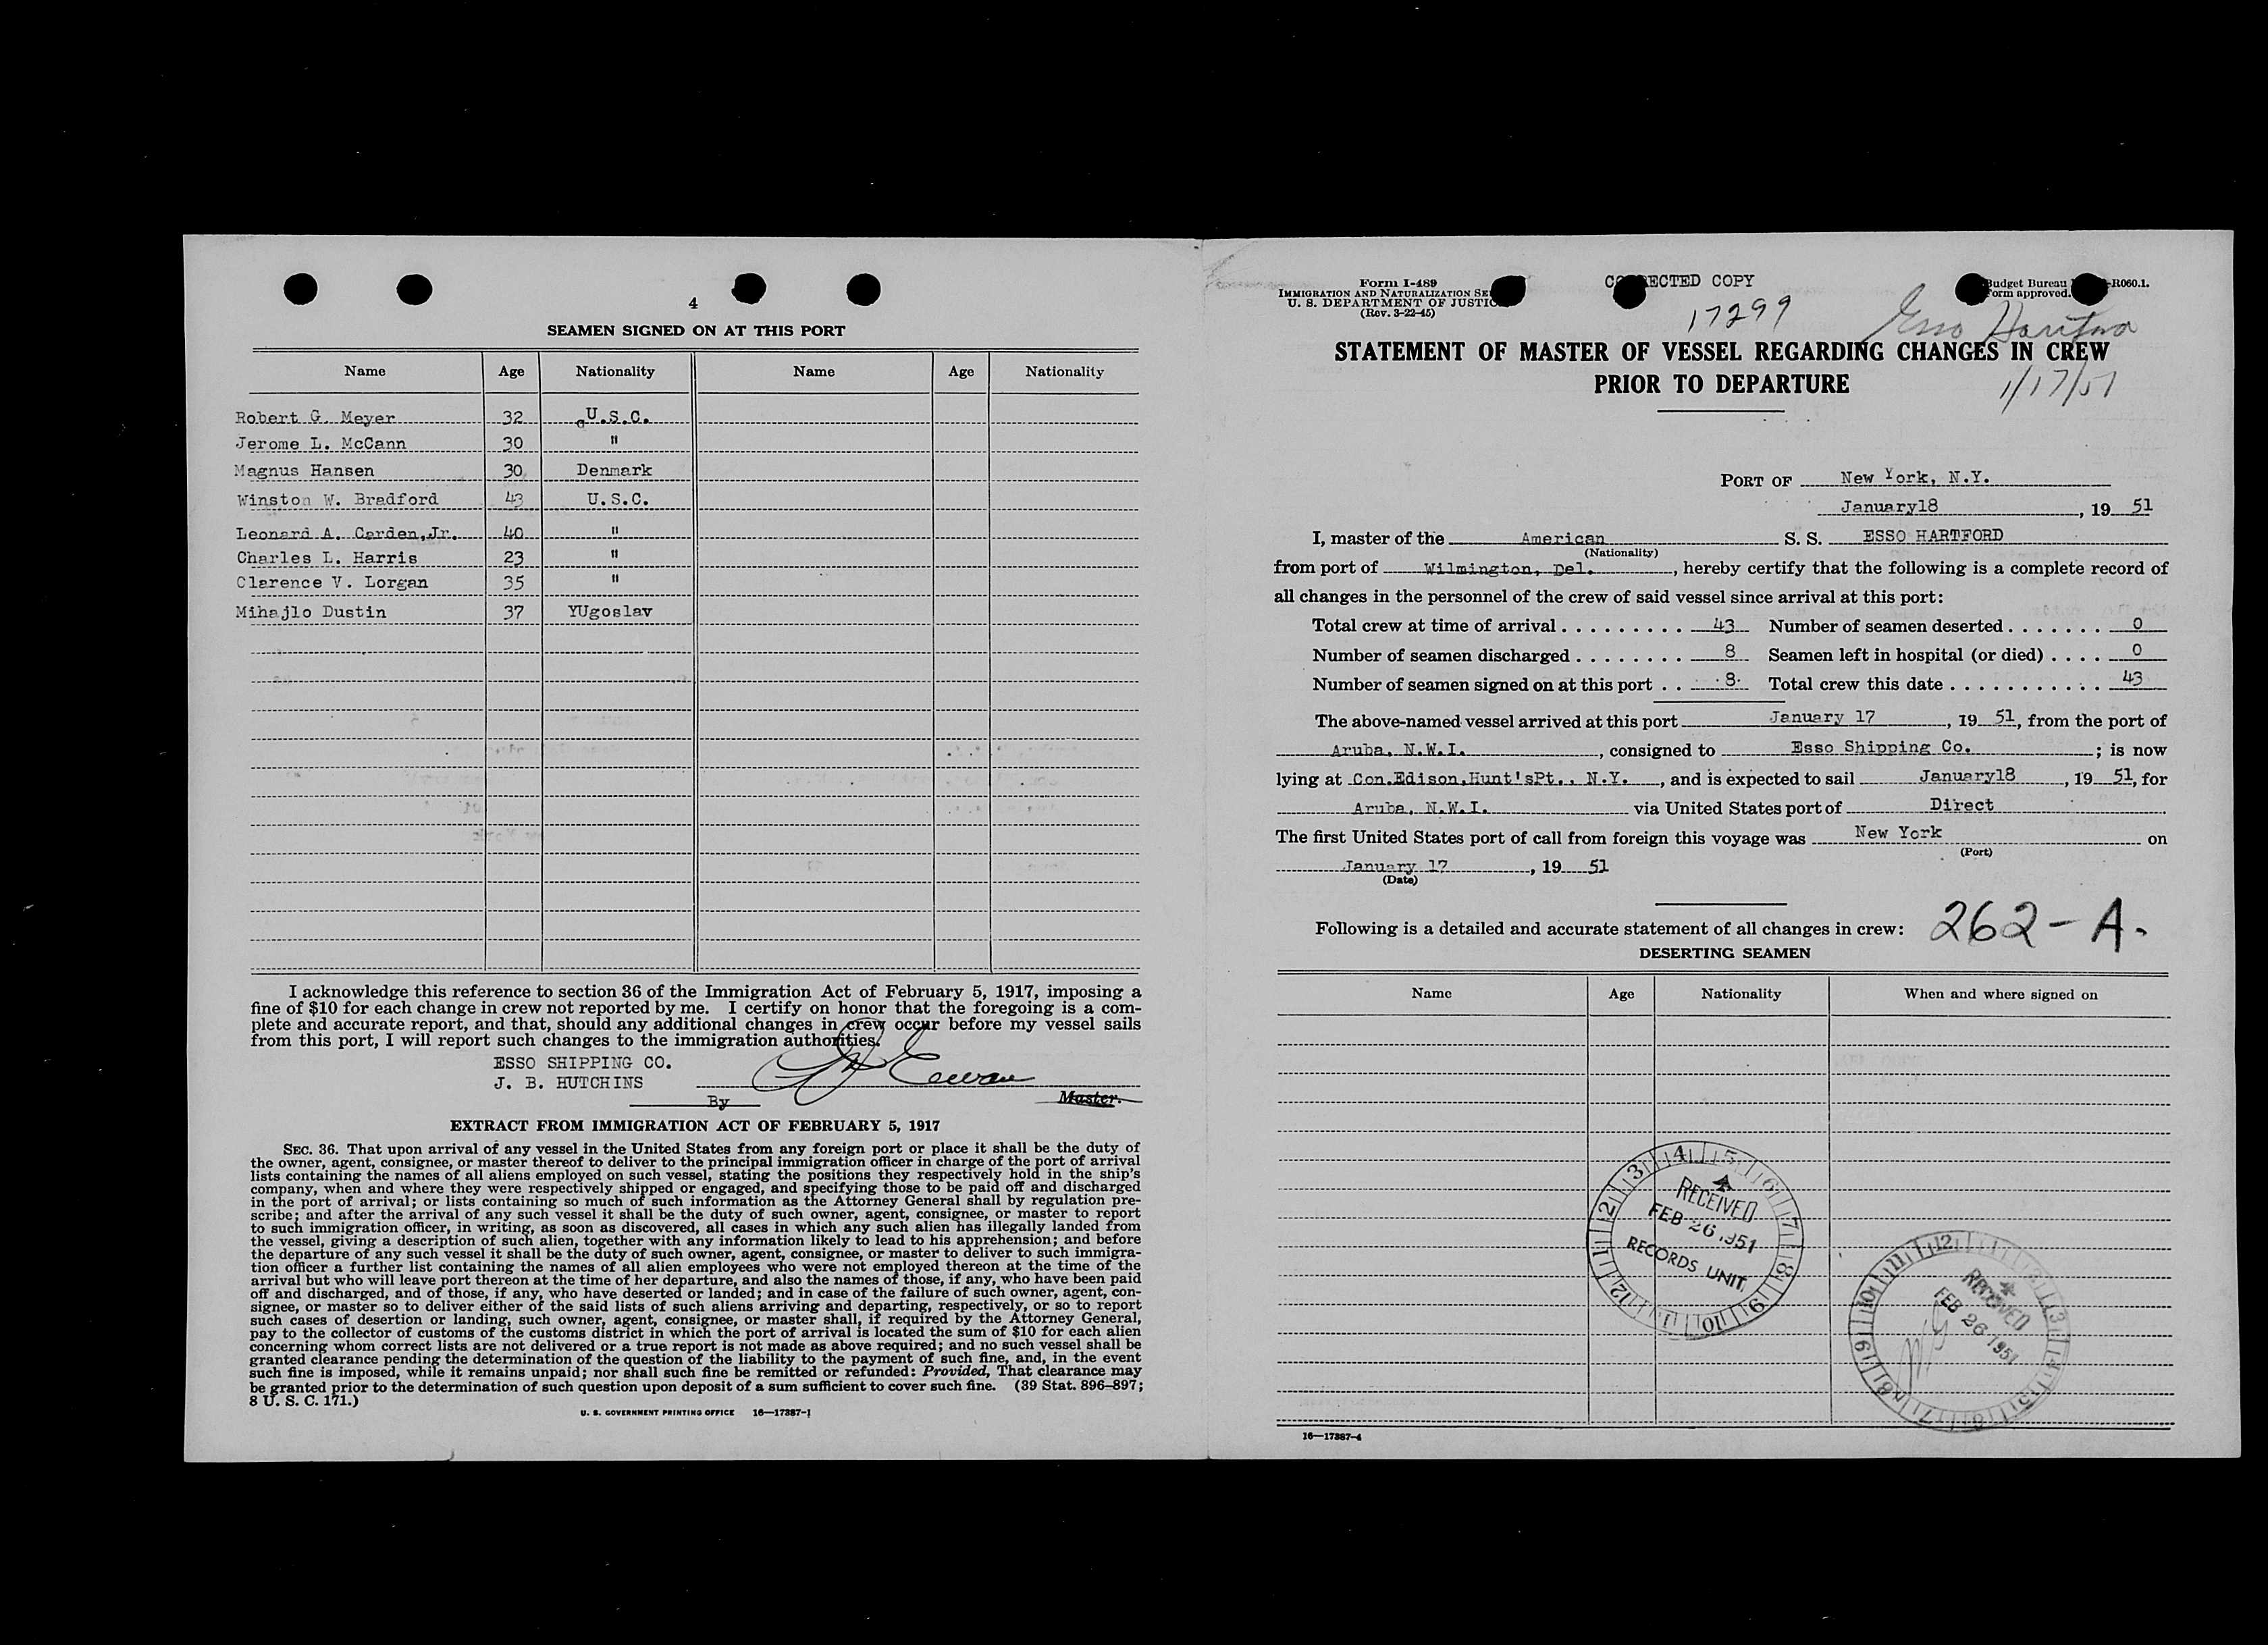 4
SEAMEN SIGNED ON AT THIS PORT
Name Age Nationality Name Age Nationality
Robert G. Meyer 32 U.S.C.
Jerome L. McCann 30 "
Magnus Hansen 30 Denmark
Winston W. Bradford 43 U.S.C.
Leonard A. Carden,Jr. 40 "
Charles L. Harris 23 "
Clarence V. Lorgan 35 "
Mihajlo Dustin 37 YUgoslav
I acknowledge this reference to section 36 of the Immigration Act of February 5, 1917, imposing a
fine of $10 for each change in crew not reported by me. I certify on honor that the foregoing is a com-
plete and accurate report, and that, should any additional changes in crew occur before my vessel sails
from this port, I will report such changes to the immigration authorities.
ESSO SHIPPING CO.
J. B. HUTCHINS
By Master.
EXTRACT FROM IMMIGRATION ACT OF FEBRUARY 5, 1917
SEC. 36. That upon arrival of any vessel in the United States from any foreign port or place it shall be the duty of
the owner, agent, consignee, or master thereof to deliver to the principal immigration officer in charge of the port of arrival
lists containing the names of all aliens employed on such vessel, stating the positions they respectively hold in the ship's
company, when and where they were respectively shipped or engaged, and specifying those to be paid off and discharged
in the port of arrival; or lists containing so much of such information as the Attorney General shall by regulation pre-
scribe; and after the arrival of any such vessel it shall be the duty of such owner, agent, consignee, or master to report
to such immigration officer, in writing, as soon as discovered, all cases in which any such alien has illegally landed from
the vessel, giving a description of such alien, together with any information likely to lead to his apprehension; and before
the departure of any such vessel it shall be the duty of such owner, agent, consignee, or master to deliver to such immigra-
tion officer a further list containing the names of all alien employees who were not employed thereon at the time of the
arrival but who will leave port thereon at the time of her departure, and also the names of those, if any, who have been paid
off and discharged, and of those, if any, who have deserted or landed; and in case of the failure of such owner, agent, con-
signee, or master so to deliver either of the said lists of such aliens arriving and departing, respectively, or so to report
such cases of desertion or landing, such owner, agent, consignee, or master shall, if required by the Attorney General,
pay to the collector of customs of the customs district in which the port of arrival is located the sum of $10 for each alien
concerning whom correct lists are not delivered or a true report is not made as above required; and no such vessel shall be
granted clearance pending the determination of the question of the liability to the payment of such fine, and, in the event
such fine is imposed, while it remains unpaid; nor shall such fine be remitted or refunded: Provided, That clearance may
be granted prior to the determination of such question upon deposit of a sum sufficient to cover such fine. (39 Stat. 896–897;
8 U. S. C. 171.)
U. S. GOVERNMENT PRINTING OFFICE 16—17387-1
Form I-489
IMMIGRATION AND NATURALIZATION
U. S. DEPARTMENT OF JUSTIC
(Rev. 3-22-45)
COPY
Budget Bureau R060.1.
Form approved.
17299
Esso Hartford
STATEMENT OF MASTER OF VESSEL REGARDING CHANGES IN CREW
PRIOR TO DEPARTURE
1/17/51
PORT OF New York, N.Y.
January18, 19 51
I, master of the American S. S. ESSO HARTFORD
(Nationality)
from port of Wilmington, Del., hereby certify that the following is a complete record of
all changes in the personnel of the crew of said vessel since arrival at this port:
Total crew at time of arrival . . . . . . . . . 43 Number of seamen deserted . . . . . . . 0
Number of seamen discharged . . . . . . . . 8 Seamen left in hospital (or died) . . . . 0
Number of seamen signed on at this port . . 8 Total crew this date . . . . . . . . . . . 43
The above-named vessel arrived at this port January 17, 19 51, from the port of
Aruba, N.W.I., consigned to Esso Shipping Co. ; is now
lying at Con.Edison,Hunt'sPt., N.Y., and is expected to sail January18, 19 51, for
Aruba, N.W.I. via United States port of Direct
The first United States port of call from foreign this voyage was New York on
(Port)
January 17, 19 51
(Date)
Following is a detailed and accurate statement of all changes in crew: 262-A.
DESERTING SEAMEN
Name Age Nationality When and where signed on
RECEIVED
FEB 26 1951
RECORDS UNIT
RECEIVED
FEB 26 1951
16—17387-4